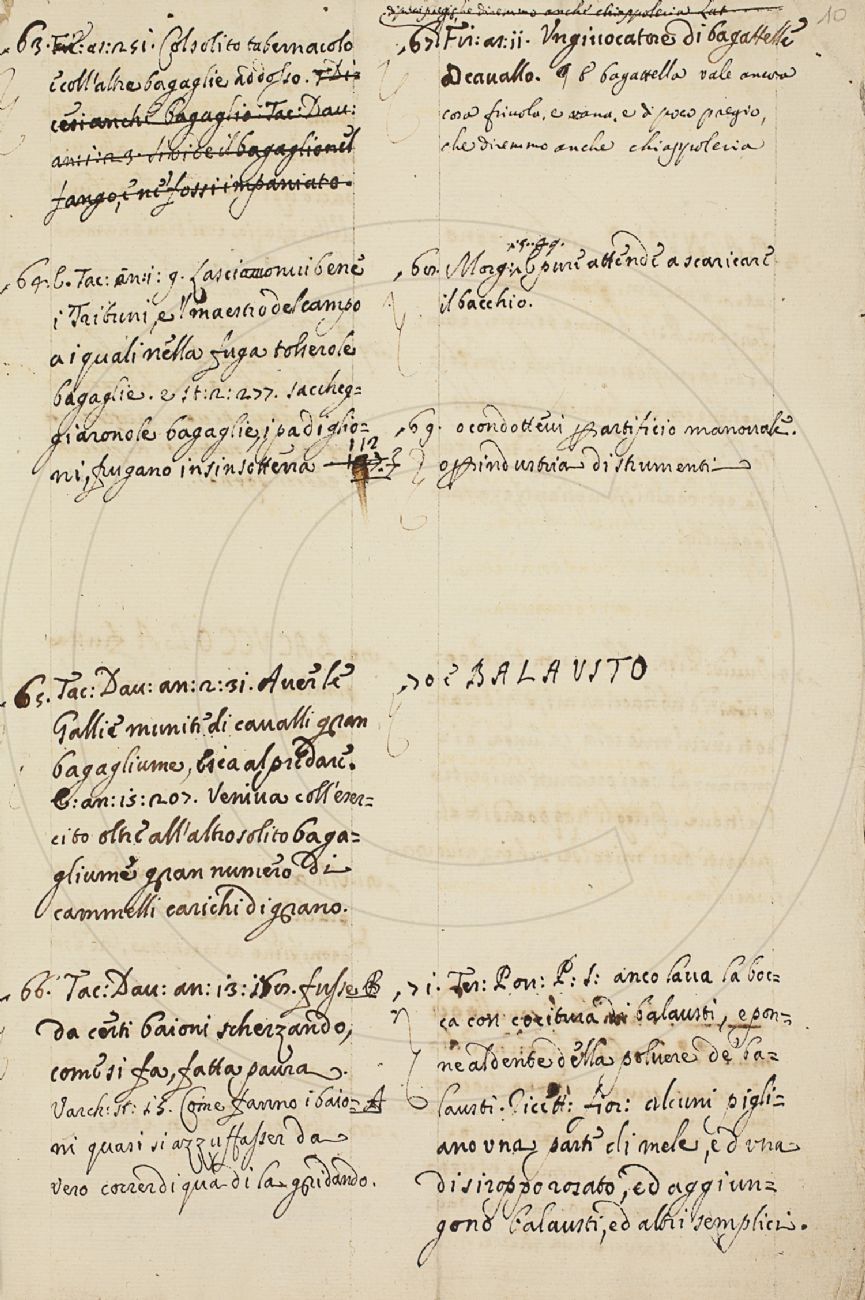 63. Fir: as: 251. Col solito tabernacolo
e coll'altre bagaglie addosso. Di=
cesi anche bagaglio. Tac: Dau:
an: 1: 23. il bagaglio nel
fango, e ne' fossi impaniato.
64. E. Tac: an: 1: 9. Lasciaronui bene
i Tribuni, e 'l maestro del campo
a i quali nella fuga tolser le
bagaglie. e st: 2: 277. saccheg=
giaron le bagaglie, i padiglio=
ni, frugano insin sotterra
112
65. Tac: Dau: an: 2: 31. Auer le
Gallie munite di caualli gran
bagagliume, esca al predare.
E: an: 15: 207. Veniua coll'eser=
cito oltre all'altro solito baga=
gliume gran numero di
cammelli carichi di grano.
66. Tac: Dau: an: 13: fusse B
da certi baioni scherzando,
come si fa, fatta paura.
Varch: st: 15. Come fanno i baio= A
ni quasi si azzuffasser da
vero correr di qua di la gridando.
10
che diremmo anche chiappoleria Lat
67. Fir: as: 11. Vn giuocatore di bagattelle
a cauallo. E bagattella vale ancora
cosa friuola, e vana, e di poco pregio,
che diremmo anche chiappoleria
68. Morg: E pure attende a scaricare
il bacchio.
69. o condotteui p artificio manouale.
o p industria di strumenti
70 è BALAUSTO
71. Tes: Pou: P: S: anco laua la boc=
ca con cocitura di balausti, e pon=
ne al dente della poluere de ba=
lausti. Ricett: Fior: alcuni pigli=
ano vna parte di mele, ed vna
di siroppo rosato, ed aggiun=
gono balausti, ed altri semplici.